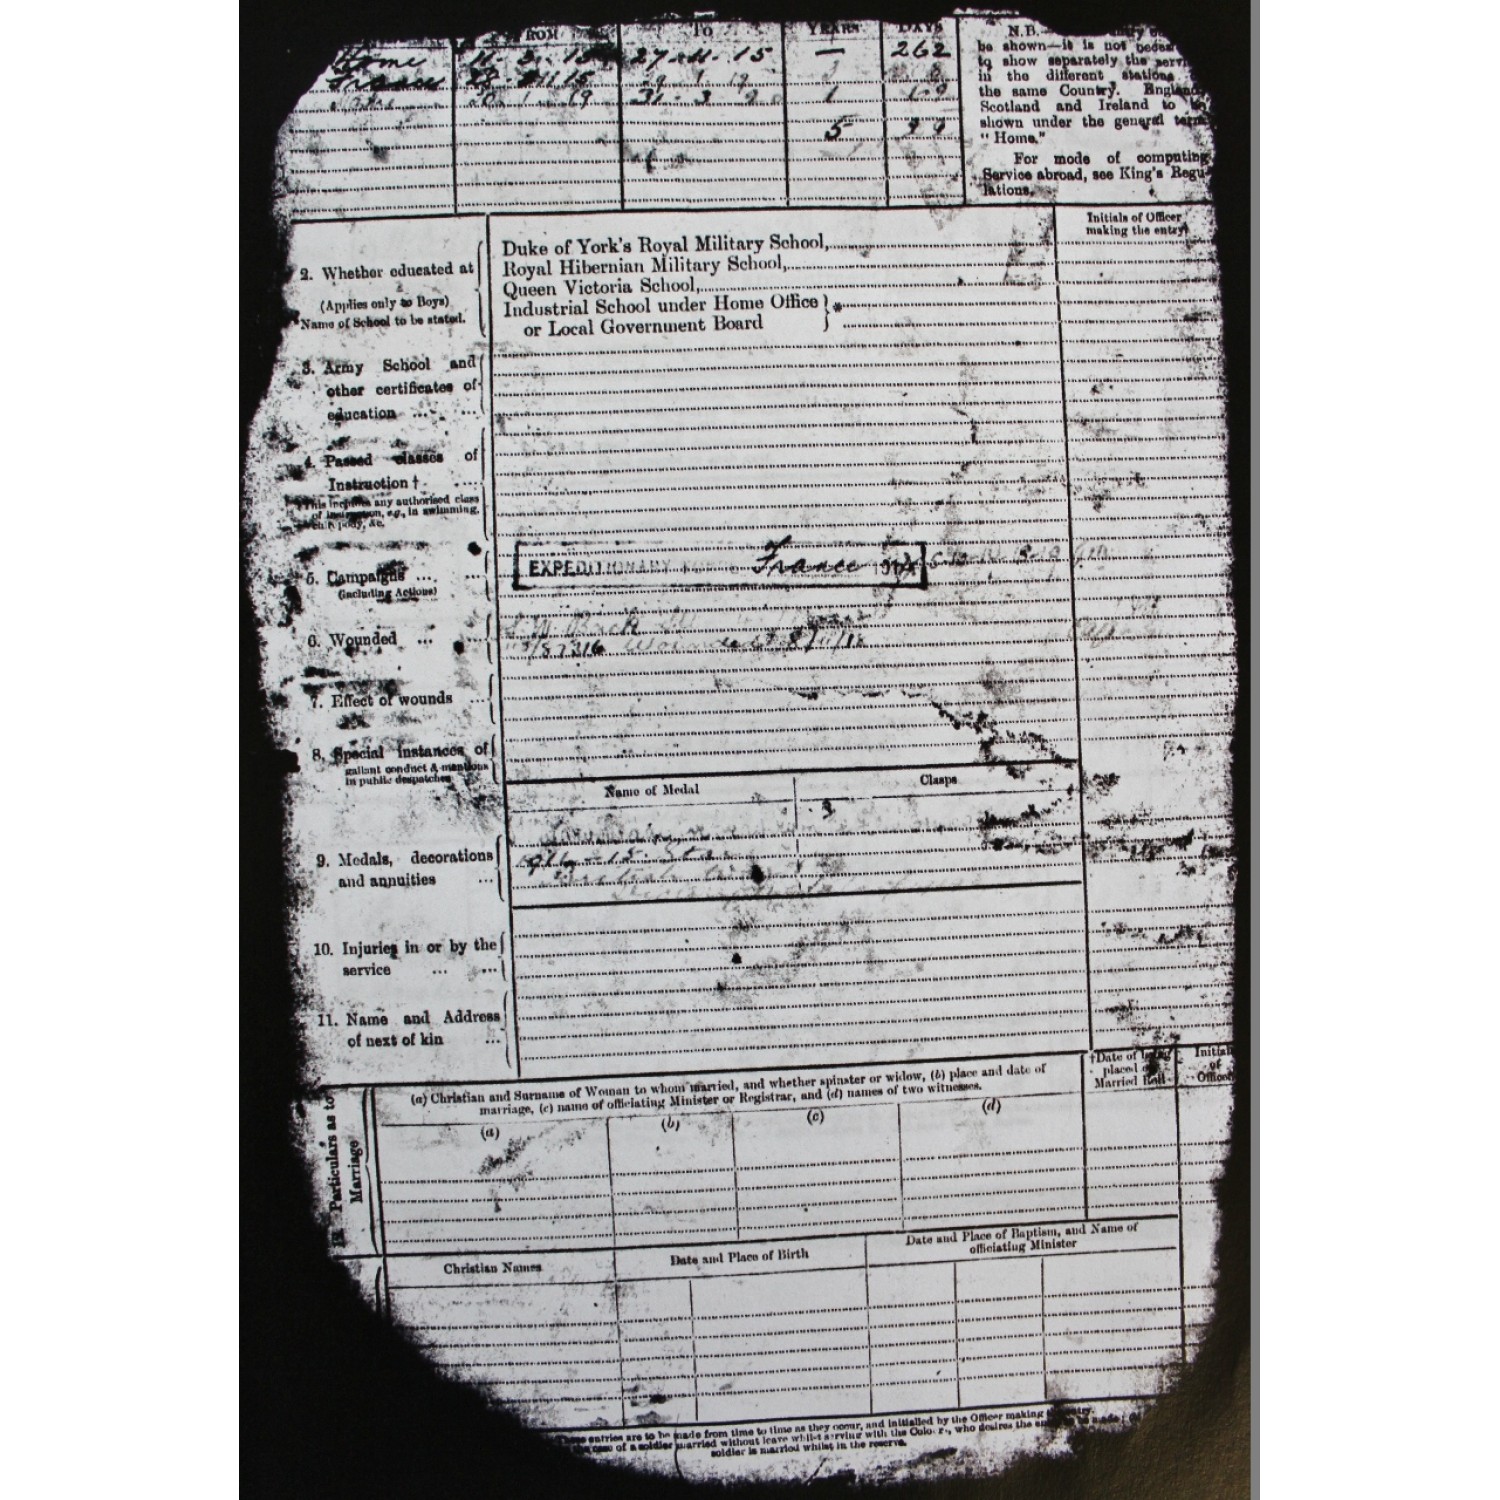 TO YEARS DAYS
Home 11 - 3 - 15 27 - 11 - 15 — 262
France
19 31 - 3 1
5
N.B.—
be shown—it is not
to show separately the
in the different stations
the same Country.
Scotland and Ireland to be
shown under the general term
"Home."
For mode of computing
Service abroad, see King's Regu-
lations.
Initials of Officer
making the entry
2. Whether educated at
(Applies only to Boys)
Name of School to be stated.
Duke of York's Royal Military School,
Royal Hibernian Military School,
Queen Victoria School,
Industrial School under Home Office } *
or Local Government Board
3. Army School and
other certificates of
education ...
4. Passed classes of
Instruction †
† This includes any authorised class
of instruction, e.g., in swimming,
&c.
5. Campaigns ...
(including Actions)
EXPEDITIONARY France
6. Wounded ...
Wounded
7. Effect of wounds ...
8. Special instances of
gallant conduct & mentions
in public despatches
Name of Medal Clasps
9. Medals, decorations
and annuities ...
15 Star
British
10. Injuries in or by the
service ... ...
11. Name and Address
of next of kin ...
12. Particulars as to
Marriage
(a) Christian and Surname of Woman to whom married, and whether spinster or widow, (b) place and date of
marriage, (c) name of officiating Minister or Registrar, and (d) names of two witnesses.
† Date of being
placed on
Married Roll
Initials
of
Officer
(a) (b) (c) (d)
Christian Names Date and Place of Birth
Date and Place of Baptism, and Name of
officiating Minister
These entries are to be made from time to time as they occur, and initialled by the Officer making
case of a soldier married without leave whilst serving with the Colours, who desires the
soldier is married whilst in the reserve.